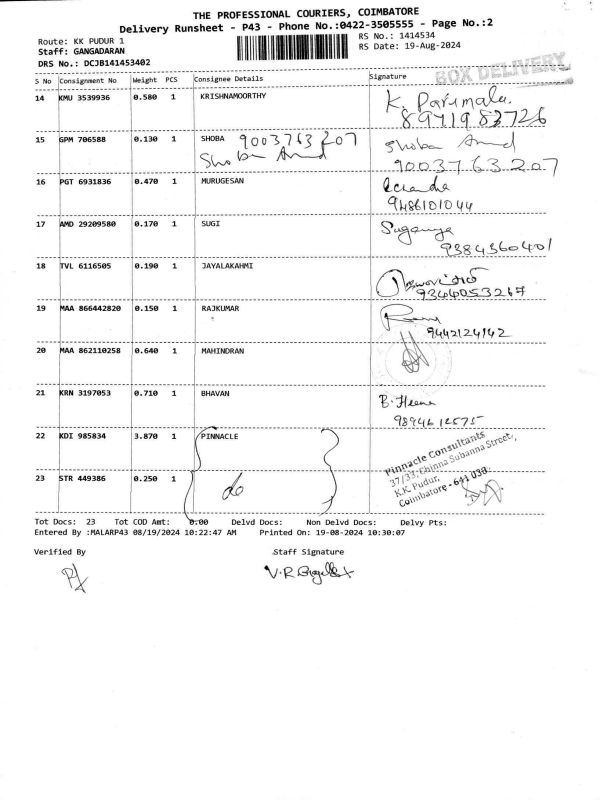 THE PROFESSIONAL COURIERS, COIMBATORE
Delivery Runsheet - P43 - Phone No.:0422-3505555 - Page No.:2
Route: KK PUDUR 1
RS No.: 1414534
Staff: GANGADARAN
RS Date: 19-Aug-2024
DRS No.: DCJB141453402
BOX DELIVERY
S No Consignment No Weight PCS Consignee Details Signature
14 KMU 3539936 0.580 1 KRISHNAMOORTHY K. Parimala
8971983726
15 GPM 706588 0.130 1 SHOBA 9003763207 Shoba Anand
Shoba Anand 9003763207
16 PGT 6931836 0.470 1 MURUGESAN
9486101044
17 AMD 29209580 0.170 1 SUGI Suganya
9384360401
18 TVL 6116505 0.190 1 JAYALAKAHMI
9344053267
19 MAA 866442820 0.150 1 RAJKUMAR
9442124142
20 MAA 862110258 0.640 1 MAHINDRAN
21 KRN 3197053 0.710 1 BHAVAN B. Heena
9894612575
22 KDI 985834 3.870 1 PINNACLE
Pinnacle Consultants
37/33, Chinna Subanna Street,
K.K. Pudur,
Coimbatore - 641 038.
23 STR 449386 0.250 1 do
Tot Docs: 23 Tot COD Amt: 0.00 Delvd Docs: Non Delvd Docs: Delvy Pts:
Entered By :MALARP43 08/19/2024 10:22:47 AM Printed On: 19-08-2024 10:30:07
Verified By Staff Signature